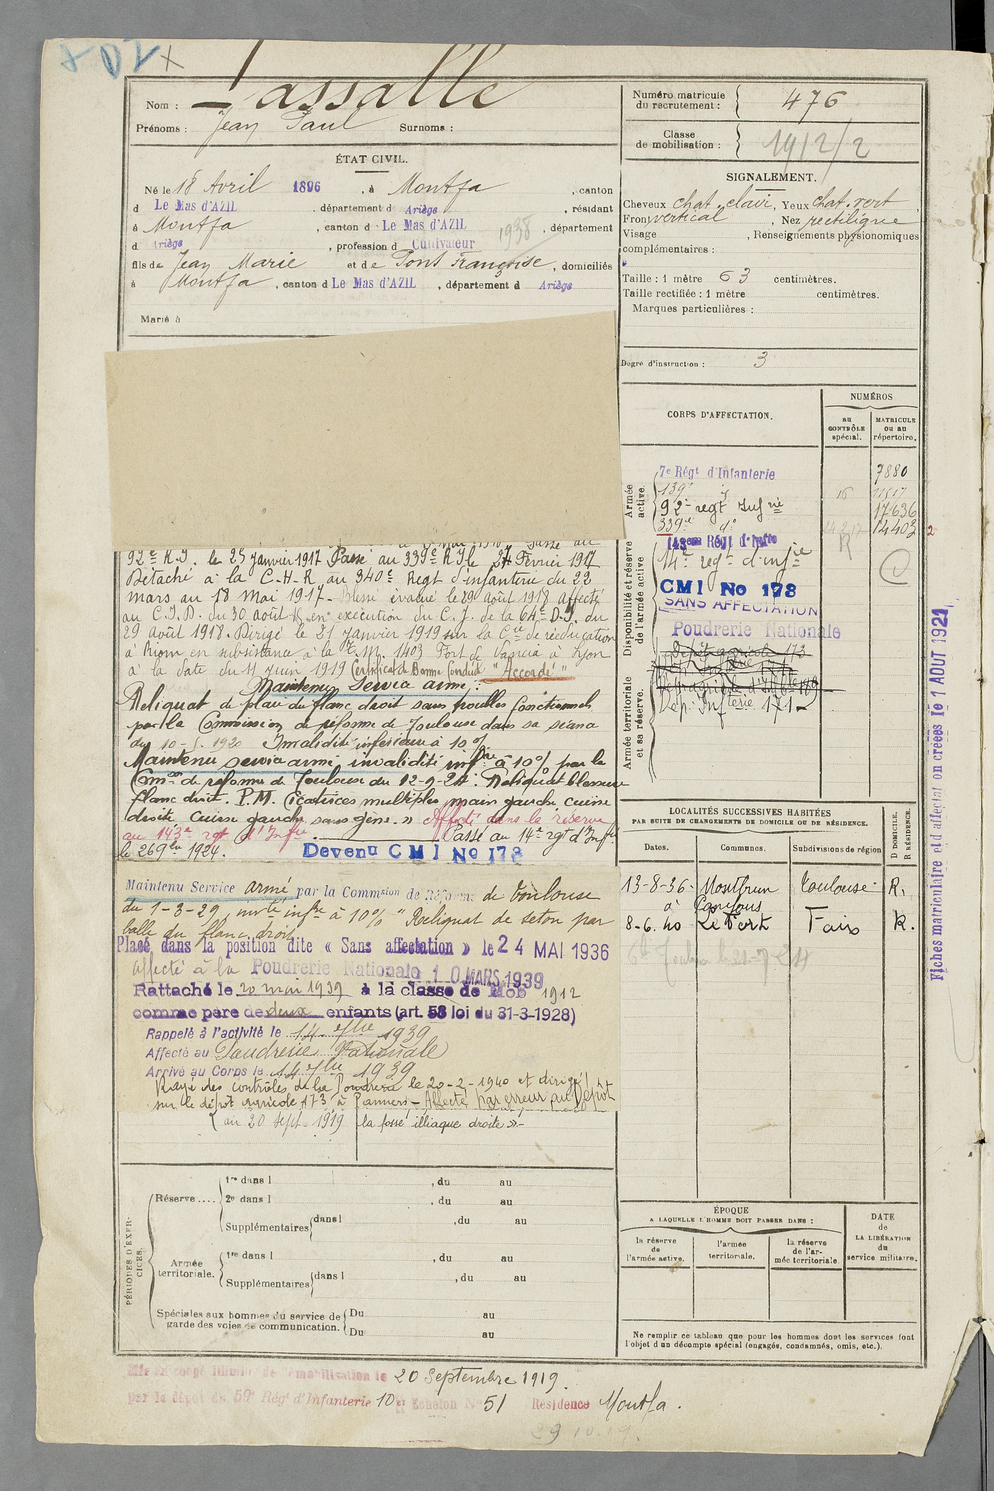 Nom : Lassalle
Prénoms : Jean Paul Surnoms :
ÉTAT CIVIL.
Né le 18 Avril 1896, à Montfa, canton
d Le Mas d'AZIL, département d Ariège, résidant
à Montfa, canton d Le Mas d'AZIL, département
d Ariège, profession d Cultivateur 1938
fils de Jean Marie et de Pont Françoise, domiciliés
à Montfa, canton d Le Mas d'AZIL, département d Ariège
Marié à
Numéro matricule du recrutement : 476
Classe de mobilisation : 1912/2
SIGNALEMENT.
Cheveux chat. clair, Yeux chat. vert
Front vertical, Nez rectiligne
Visage , Renseignements physionomiques
complémentaires :
Taille : 1 mètre 63 centimètres.
Taille rectifiée : 1 mètre centimètres.
Marques particulières :
Degré d'instruction : 3
CORPS D'AFFECTATION.
NUMÉROS
au CONTRÔLE spécial.
MATRICULE ou au répertoire.
Armée active.
Disponibilité et réserve de l'armée active
Armée territoriale et sa réserve.
7e Régt d'Infanterie 7880
139e d°
92e regt Infrie 17636
339e d° 14403
143ème Régt d'Infie
14e regt d'infie
CMI No 178
SANS AFFECTATION
Poudrerie Nationale
92e R.I. le 25 janvier 1917 Passé au 339e R.I. le 27 Février 1917
Détaché à la C.H.R. au 340e Regt d'infanterie du 22
mars au 18 mai 1917. Blessé évacué le 29 août 1918 affecté
au C.I.D. du 30 août 18 en exécution du C.I. de la 64e D.I. du
29 août 1918. Dirigé le 21 janvier 1919 sur la Cie de rééducation
à Riom en subsistance à la
à la date du 11 juin 1919 Certificat de Bonne Conduite "Accordé"
Maintenu service armé :
Reliquat de plaie du flanc droit sans troubles fonctionnels
par la Commission de réforme de Toulouse dans sa séance
du 10- 1920 Invalidité inférieure à 10%
Maintenu service armé invalidité infre à 10% par la
Comon de réforme de Toulouse du 12-9-24. Reliquat blessure
flanc droit. P.M. Cicatrices multiples main gauche cuisse
droite cuisse gauche sans gêne. » Affecté dans la réserve
au 143e rgt d'Infie. Passé au 14e rgt d'Infie
le 26 9bre 1924. Devenu CMI No 178
Maintenu Service armé par la Commsion de Réforme de Toulouse
du 1-3-29, invté infre à 10% "Reliquat de seton par
balle du flanc droit
Placé dans la position dite « Sans affectation » le 24 MAI 1936
affecté à la Poudrerie Nationale 10 MARS 1939
Rattaché le 20 mai 1939 à la classe de Mob 1912
comme père de deux enfants (art. 58 loi du 31-3-1928)
Rappelé à l'activité le 14 7bre 1939
Affecté au Poudrerie Nationale
Arrivé au Corps le 14 7bre 1939
Rayé des contrôles de la Poudrerie le 20-2-1940 et dirigé
sur le dépôt agricole 173 à Pamiers - Affecté par erreur au Dépôt
au 20 sept. 1919 la fosse illiaque droite »-
LOCALITÉS SUCCESSIVES HABITÉES
PAR SUITE DE CHANGEMENTS DE DOMICILE OU DE RÉSIDENCE.
Dates. Communes. Subdivisions de région D DOMICILE. R RÉSIDENCE.
13-8-36 Montbrun Toulouse R.
8-6.40 Le Port Foix R.
Fiches matriculaire et d'affectation créées le 1 AOUT 1921
PÉRIODES D'EXERCICES.
Réserve....
1re dans l , du au
2e dans l , du au
Supplémentaires dans l , du au
Armée territoriale.
1re dans l , du au
Supplémentaires dans l , du au
Spéciales aux hommes du service de garde des voies de communication.
Du au
Du au
ÉPOQUE
A LAQUELLE L'HOMME DOIT PASSER DANS :
la réserve de l'armée active.
l'armée territoriale.
la réserve de l'armée territoriale.
DATE de LA LIBÉRATION du service militaire.
Ne remplir ce tableau que pour les hommes dont les services font
l'objet d'un décompte spécial (engagés, condamnés, omis, etc.).
Mis en congé illimité de démobilisation le 20 Septembre 1919.
par le dépôt du 59e Régt d'Infanterie 10e Echelon No 51 Résidence Montfa.